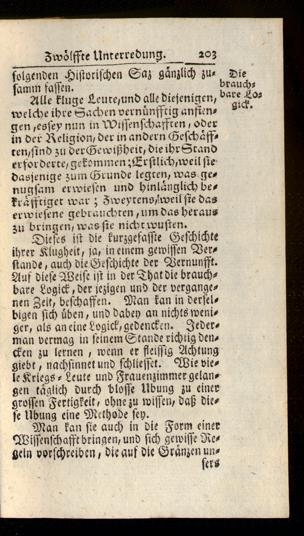 Zwölffte Unterredung. 203
folgenden Historischen Saz gänzlich zu-
samm fassen.
Die
brauch-
bare Lo-
gick.
Alle kluge Leute, und alle diejenigen,
welche ihre Sachen vernünfftig anfien-
gen, es sey nun in Wissenschafften, oder
in der Religion, der in andern Geschäff-
ten, sind zu der Gewißheit, die ihr Stand
erforderte, gekommen; Erstlich, weil sie
dasjenige zum Grunde legten, was ge-
nugsam erwiesen und hinlänglich be-
kräfftiget war; Zweytens, weil sie das
erwiesene gebrauchten, um das heraus
zu bringen, was sie nicht wusten.
Dieses ist die kurzgefaßte Geschichte
ihrer Klugheit, ja, in einem gewissen Ver-
stande, auch die Geschichte der Vernunfft.
Auf diese Weise ist in der That die brauch-
bare Logick, der jezigen und der vergange-
nen Zeit, beschaffen. Man kan in dersel-
bigen sich üben, und dabey an nichts weni-
ger, als an eine Logick, gedencken. Jeder-
man vermag in seinem Stande richtig den-
cken zu lernen, wenn er fleissig Achtung
giebt, nachsinnet und schliesset. Wie vie-
le Kriegs-Leute und Frauenzimmer gelan-
gen täglich durch blosse Ubung zu einer
grossen Fertigkeit, ohne zu wissen, daß die-
se Ubung eine Methode sey.
Man kan sie auch in die Form einer
Wissenschafft bringen, und sich gewisse Re-
geln vorschreiben, die auf die Gränzen un-
sers